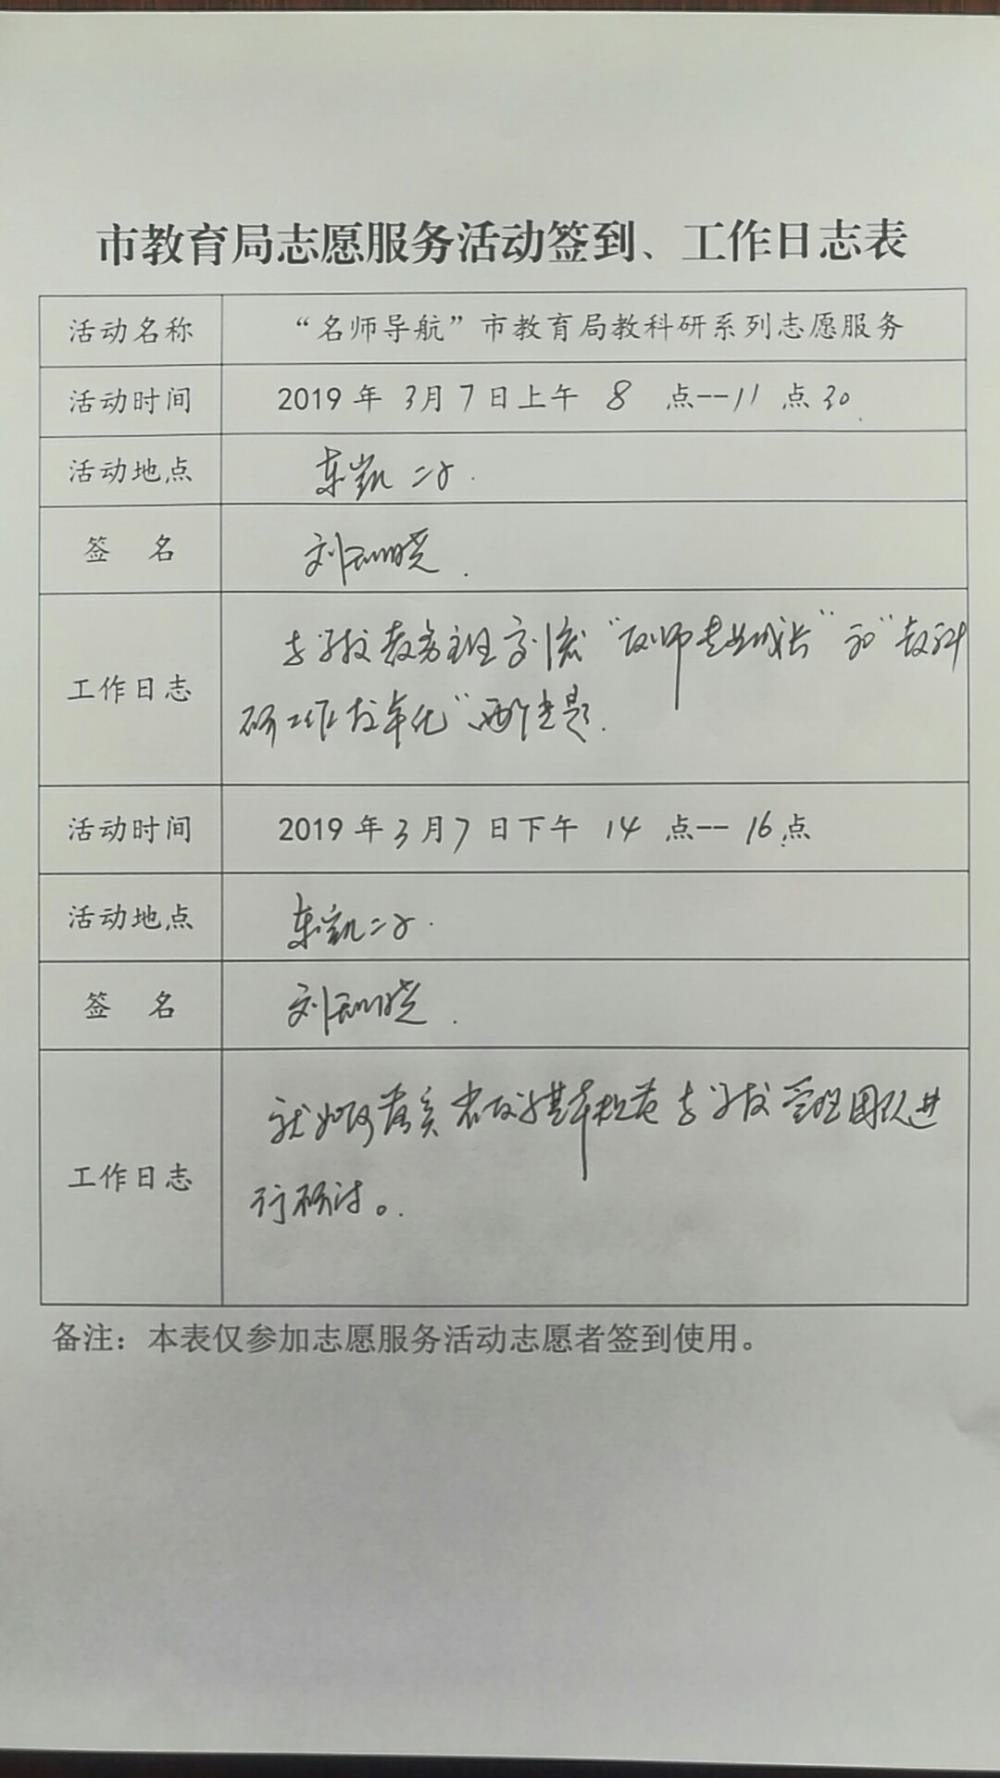 市教育局志愿服务活动签到、工作日志表
活动名称 “名师导航”市教育局教科研系列志愿服务
活动时间 2019年3月7日上午 8 点--11点30
活动地点 东凯二小.
签 名 刘
工作日志 与学校教务主任交流“教师专业成长”和“教科
研工作校本化”两个主题.
活动时间 2019年3月7日下午 14 点--16点
活动地点 东凯二小.
签 名 刘
工作日志 就如何落实省教学基本规范与学校管理团队进
行研讨。
备注：本表仅参加志愿服务活动志愿者签到使用。